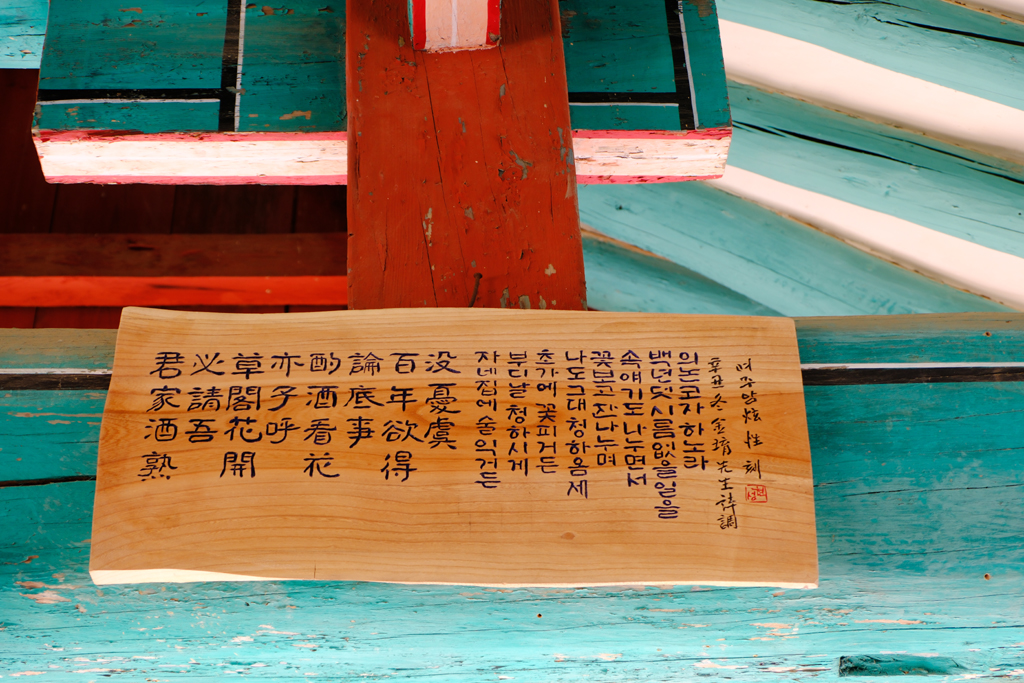 君家酒熟
必請吾
草閣花開
亦子呼
酌酒看花
論底事
百年欲得
没憂虞
자네집에 술익거든
부디날 청하시게
초가에 꽃피거든
나도그대 청하옴세
꽃보고 잔나누며
속얘기도 나누면서
백년덧 시름없을일을
의논코자 하노라
辛丑冬 金堉先生詩調
여주암 炫性 刻